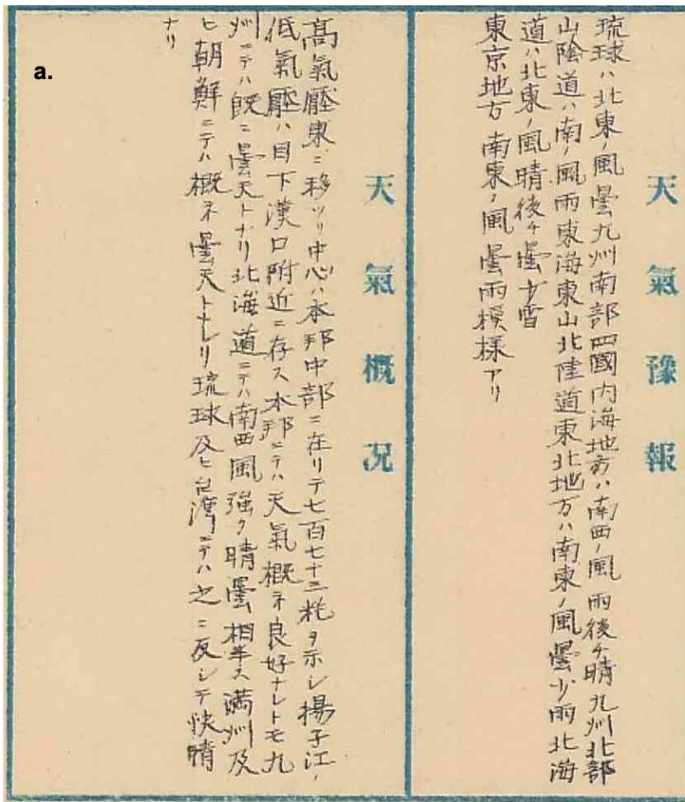 a.
天氣豫報
琉球ハ北東ノ風曇九州南部四國内海地方ハ南西ノ風雨後チ晴九州北部
山陰道ハ南ノ風雨東海東山北陸道東北地方ハ南東ノ風曇少雨北海
道ハ北東ノ風晴後チ曇少雪
東京地方 南東ノ風曇雨模様アリ
天氣概況
高氣壓東ニ移ツリ中心ハ本邦中部ニ在リテ七百七十三粍ヲ示シ揚子江ノ
低氣壓ハ目下漢口附近ニ存ス本邦ニテハ天氣概ネ良好ナレトモ九
州ニテハ既ニ曇天トナリ北海道ニテハ南西風強ク晴曇相半ス満州及
ヒ朝鮮ニテハ概ネ曇天トナレリ琉球及ヒ台湾ニテハ之ニ反シテ快晴
ナリ